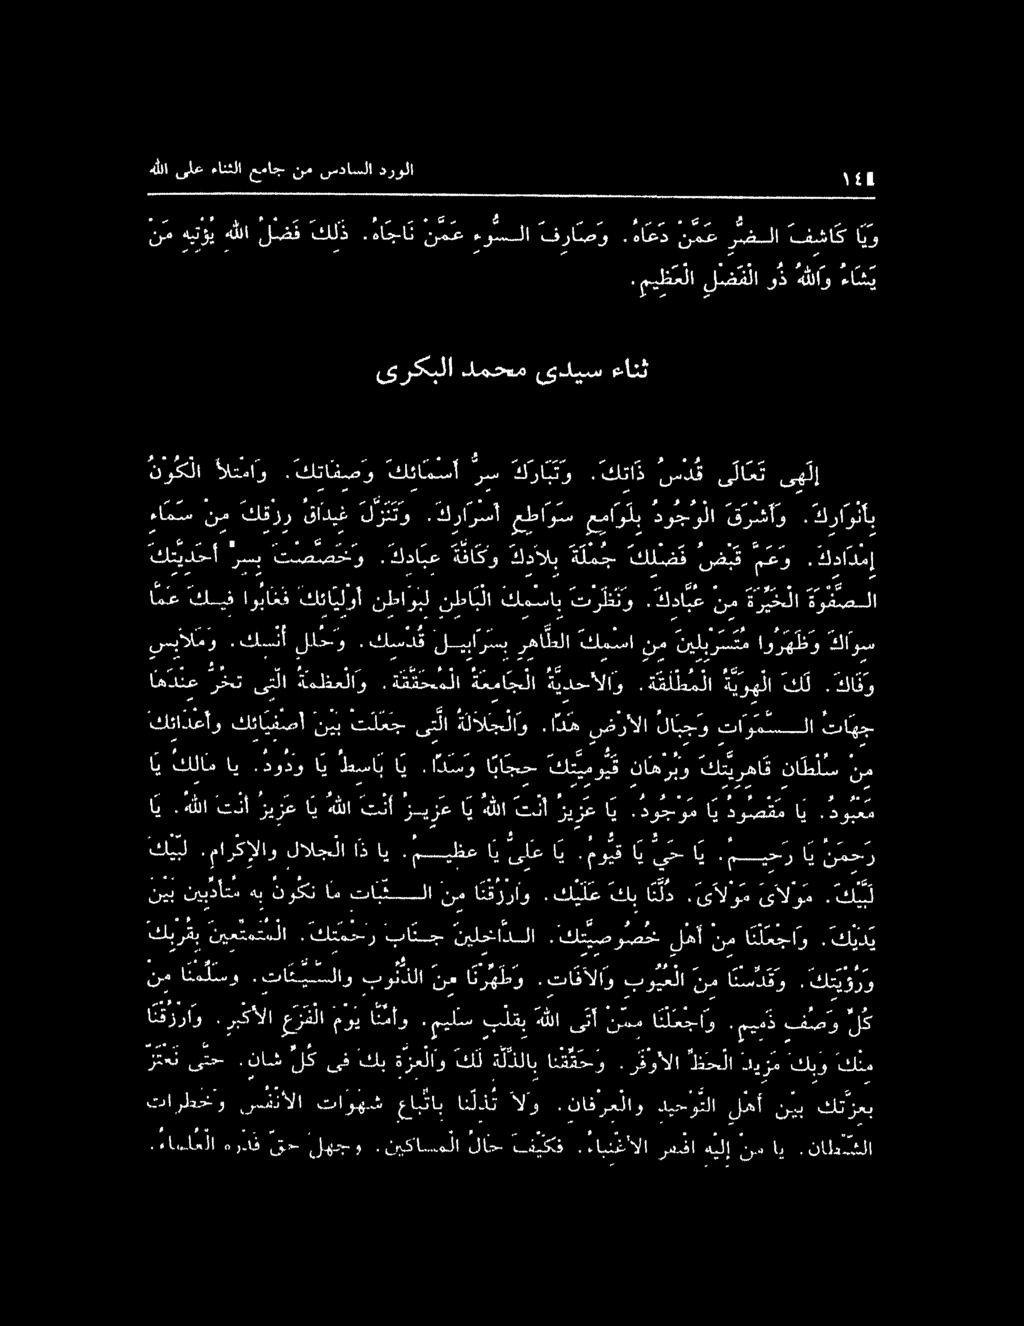 ١٤١ الورد السادس من جامع الثناء على الله
وَيَا كَاشِفَ الـضُّرِّ عَمَّنْ دَعَاهُ. وَصَارِفَ الـسُّوءِ عَمَّنْ نَاجَاهُ. ذٰلِكَ فَضْلُ اللهِ يُؤْتِيهِ مَنْ
يَشَاءُ وَاللهُ ذُو الْفَضْلِ الْعَظِيمِ.
ثناء سيدى محمد البكرى
إِلَهِى تَعَالَى قُدْسُ ذَاتِكَ. وَتَبَارَكَ سِرُّ أَسْمَائِكَ وَصِفَاتِكَ. وَامْتَلأَ الْكَوْنُ
بِأَنْوَارِكَ. وَأَشْرَقَ الْوُجُودُ بِلَوَامِعِ سَوَاطِعِ أَسْرَارِكَ. وَتَنَزَّلَ غَيْدَاقُ رِزْقِكَ مِنْ سَمَاءِ
إِمْدَادِكَ. وَعَمَّ قَبْضُ فَضْلِكَ جُمْلَةَ بِلاَدِكَ وَكَافَّةَ عِبَادِكَ. وَخَصَّصْتَ بِسِرِّ أَحَدِيَّتِكَ
الـصَّفْوَةَ الْخَيِّرَةَ مِنْ عُبَّادِكَ. وَنَظَرْتَ بِاسْمِكَ الْبَاطِنِ لِبَوَاطِنِ أَوْلِيَائِكَ فَغَابُوا فِيـكَ عَمَّا
سِوَاكَ وَظَهَرُوا مُتَسَرْبِلِينَ مِنِ اسْمِكَ الظَّاهِرِ بِسَرَابِيـلِ قُدْسِكِ. وَحُلَلِ أُنْسِكِ. وَمَلاَبِسِ
وَفَاكَ. لَكَ الْهُوِيَّةُ الْمُطْلَقَة. وَالأَحَدِيَّةُ الْجَامِعَةُ الْمُحَقَّقَة. وَالْعَظَمَةُ الَّتِى تَخُرُّ عِنْدَهَا
جِهَاتُ الـسَّمَوَاتِ وَجِبَالُ الأَرْضِ هَدًّا. وَالْجَلاَلَةُ الَّتِى جَعَلَتْ بَيْنَ أَصْفِيَائِكَ وَأَعْدَائِكَ
مِنْ سُلْطَانِ قَاهِرِيَّتِكَ وَبُرْهَانِ قَيُّومِيَّتِكَ حِجَابًا وَسَدًّا. يَا بَاسِطُ يَا وَدُودُ. يَا مَالِكُ يَا
مَعْبُودُ. يَا مَقْصُودُ يَا مَوْجُودُ. يَا عَزِيزُ أَنْتَ اللهُ يَا عَزِيـزُ أَنْتَ اللهُ يَا عَزِيزُ أَنْتَ اللهُ. يَا
رَحمَنُ يَا رَحِيـمُ. يَا حَيُّ يَا قَيُّومُ. يَا عَلِىُّ يَا عَظِيـم. يَا ذَا الْجَلالِ وَالإِكْرَامِ. لَبَّيْكَ
لَبَّيْكَ. مَوْلاَىَ مَوْلاَىَ. دُلَّنَا بِكَ عَلَيْكَ. وَارْزُقْنَا مِنَ الـثَّبَاتِ مَا نَكُونُ بِهِ مُتَأَدِّبِينَ بَيْنَ
يَدَيْكَ. وَاجْعَلْنَا مِنْ أَهْلِ خُصُوصِيَّتِكَ. الـدَّاخِلِينَ جَـنَابَ رَحْمَتِكَ. الْمُتَمَتِّعِينَ بِقُرْبِكَ
وَرُؤْيَتِكَ. وَقَدِّسْنَا مِنَ الْعُيُوبِ وَالآفَاتِ. وَطَهِّرْنَا مِنَ الذُّنُوبِ وَالسَّيِّئَاتِ. وَسَلِّمْنَا مِنْ
كُلِّ وَصْفٍ ذَمِيمٍ. وَاجْعَلْنَا مِمَّنْ أَتَى اللهَ بِقَلْبٍ سَلِيمٍ. وَأَمِّنَّا يَوْمَ الْفَزَعِ الأَكْبَرِ. وَارْزُقْنَا
مِنْكَ وَبِكَ مَزِيدَ الْحَظِّ الأَوْفَرِ. وَحَقِّقْنَا بِالذِّلَّةِ لَكَ وَالْعِزَّةِ بِكَ فِى كُلِّ شَانٍ. حَتَّى نَعْتَزَّ
بِعِزَّتِكَ بَيْنَ أَهْلِ التَّوْحِيدِ وَالْعِرْفَانِ. وَلاَ تُذِلَّنَا بِاتِّبَاعِ شَهَوَاتِ الأَنْفُسِ وَخَطَرَاتِ
الشَّيْطَانِ. يَا مَنْ إِلَيْهِ افْتَقَرَ الأَغْنِيَاءُ. فَكَيْفَ حَالُ الْمَسَاكِينِ. وَجَهِلَ حَقَّ قَدْرِهِ الْعُلَمَاءُ.